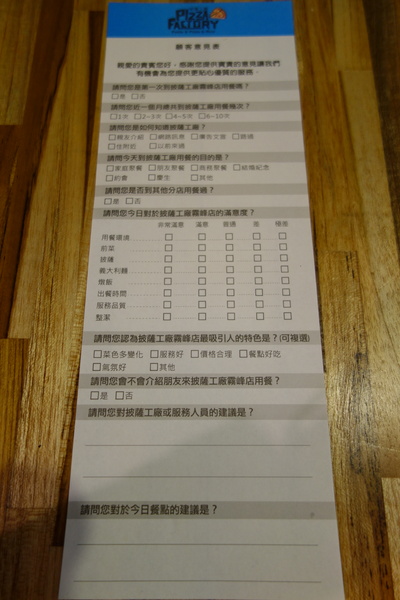 Pizza
FACTORY
顧客意見表
親愛的貴賓您好，感謝您提供寶貴的意見讓我們
有機會為您提供更貼心優質的服務。
請問您是第一次到披薩工廠霧峰店用餐嗎？
□是 □否
請問您近一個月總共到披薩工廠用餐幾次？
□1次 □2~3次 □4~5次 □6~10次
請問您是如何知道披薩工廠？
□親友介紹 □網路訊息 □廣告文宣 □路過
□住附近 □以前來過
請問今天到披薩工廠用餐的目的是？
□家庭聚餐 □朋友聚餐 □商務聚餐 □結婚紀念
□約會 □慶生 □其他
請問您是否到其他分店用餐過？
□是 □否
請問您今日對於披薩工廠霧峰店的滿意度？
非常滿意 滿意 普通 差 極差
用餐環境 □ □ □ □ □
前菜 □ □ □ □ □
披薩 □ □ □ □ □
義大利麵 □ □ □ □ □
燉飯 □ □ □ □ □
出餐時間 □ □ □ □ □
服務品質 □ □ □ □ □
整潔 □ □ □ □ □
請問您認為披薩工廠霧峰店最吸引人的特色是？(可複選)
□菜色多變化 □服務好 □價格合理 □餐點好吃
□氣氛好 □其他
請問您會不會介紹朋友來披薩工廠霧峰店用餐？
□是 □否
請問您對披薩工廠或服務人員的建議是？
請問您對於今日餐點的建議是？